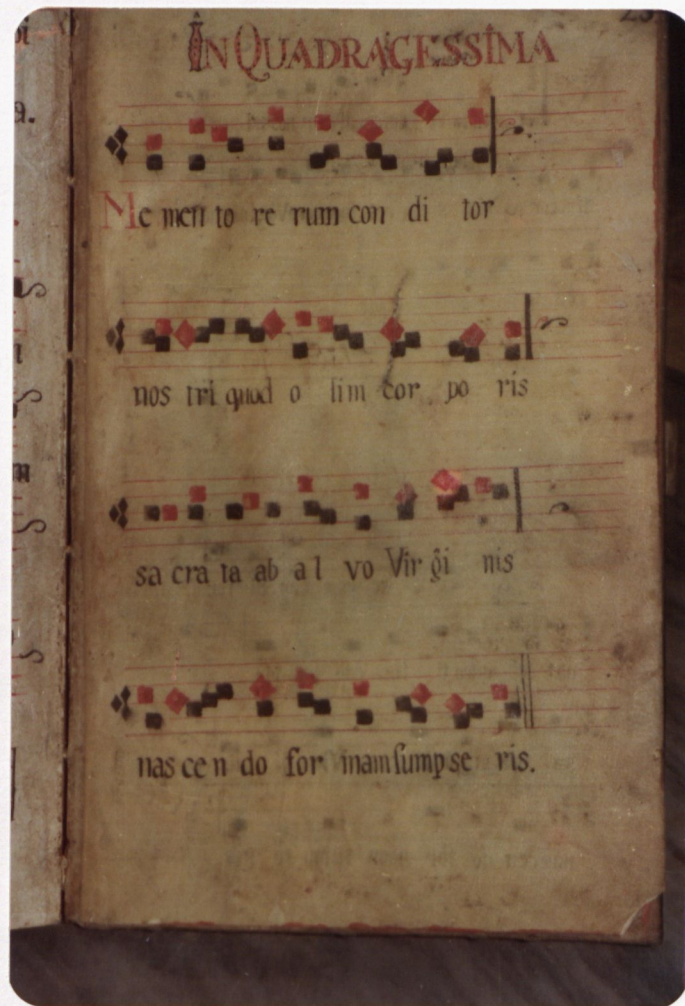 IN QUADRAGESSIMA
Me men to re rum con di tor
nos tri quod o lim cor po ris
sa cra ta ab al vo Vir gi nis
nas ce n do for mam sump se ris.